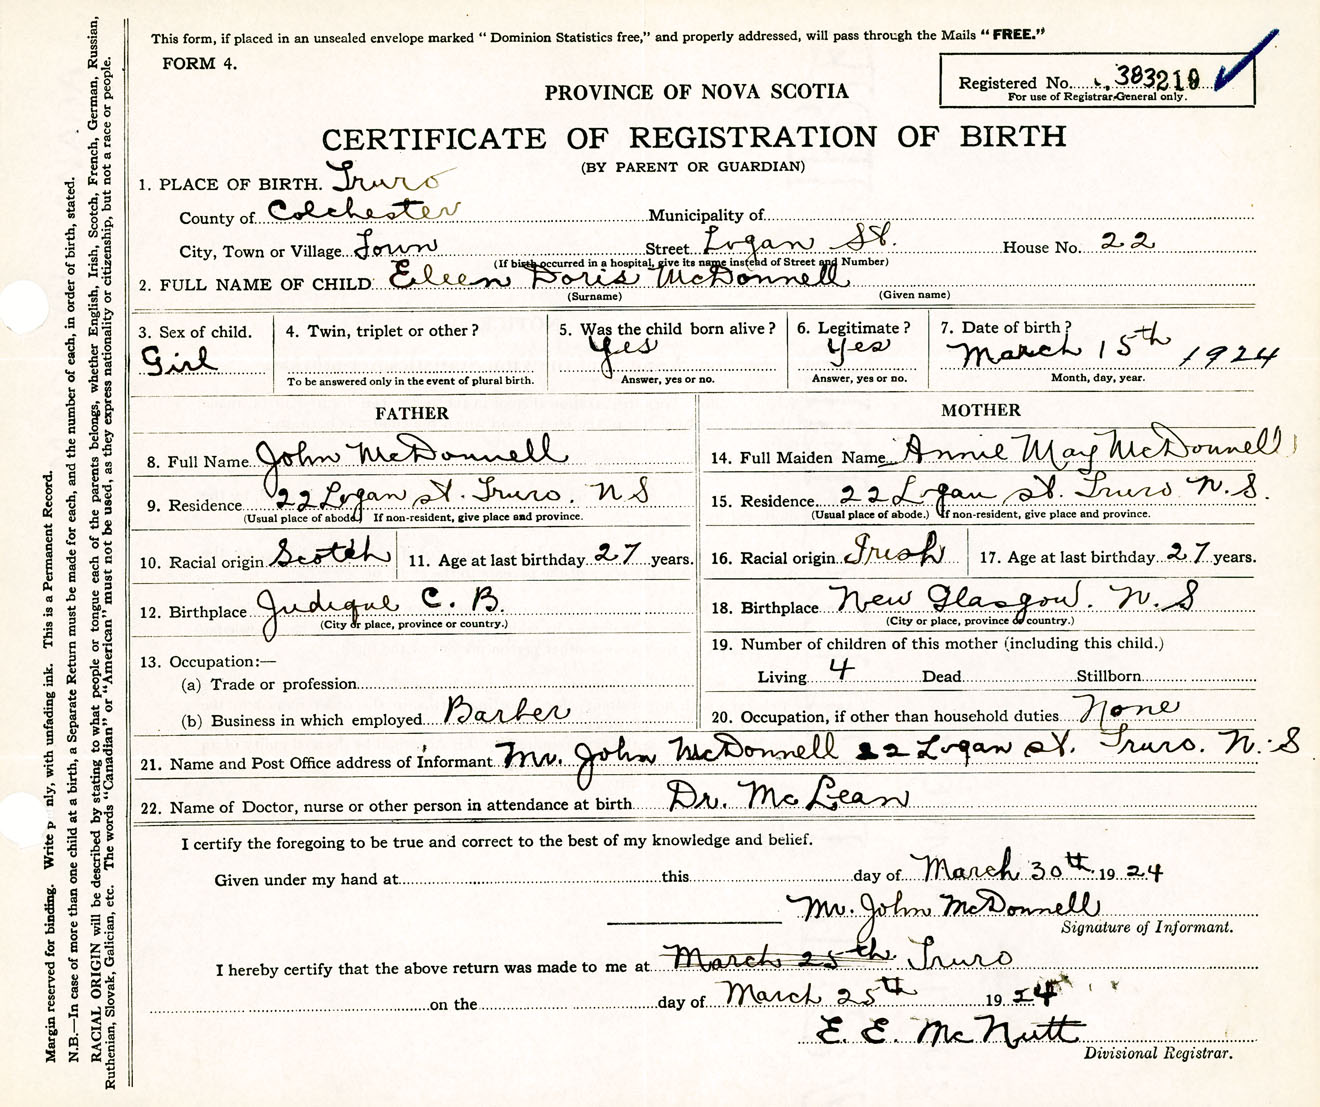 This form, if placed in an unsealed envelope marked “ Dominion Statistics free,” and properly addressed, will pass through the Mails “ FREE.”
FORM 4.
Registered No. 383210
For use of Registrar-General only.
PROVINCE OF NOVA SCOTIA
CERTIFICATE OF REGISTRATION OF BIRTH
(BY PARENT OR GUARDIAN)
1. PLACE OF BIRTH. Truro
County of Colchester Municipality of
City, Town or Village Town Street Logan St. House No. 22
(If birth occurred in a hospital, give its name instead of Street and Number)
2. FULL NAME OF CHILD Eileen Doris McDonnell
(Surname) (Given name)
3. Sex of child. 4. Twin, triplet or other ? 5. Was the child born alive ? 6. Legitimate ? 7. Date of birth ?
Girl Yes Yes March 15th 1924
To be answered only in the event of plural birth. Answer, yes or no. Answer, yes or no. Month, day, year.
FATHER
8. Full Name John McDonnell
9. Residence 22 Logan st. Truro. N S
(Usual place of abode.) If non-resident, give place and province.
10. Racial origin Scotch 11. Age at last birthday 27 years.
12. Birthplace Judique C. B.
(City or place, province or country.)
13. Occupation:—
(a) Trade or profession
(b) Business in which employed Barber
MOTHER
14. Full Maiden Name Annie May McDonnell
15. Residence 22 Logan st. Truro N. S.
(Usual place of abode.) If non-resident, give place and province.
16. Racial origin Irish 17. Age at last birthday 27 years.
18. Birthplace New Glasgow. N. S
(City or place, province or country.)
19. Number of children of this mother (including this child.)
Living 4 Dead Stillborn
20. Occupation, if other than household duties None
21. Name and Post Office address of Informant Mr. John McDonnell 22 Logan st. Truro. N. S
22. Name of Doctor, nurse or other person in attendance at birth Dr. McLean
I certify the foregoing to be true and correct to the best of my knowledge and belief.
Given under my hand at this day of March 30th 1924
Mr. John McDonnell
Signature of Informant.
I hereby certify that the above return was made to me at March 25th. Truro
on the day of March 25th 1924
E. E. McNutt
Divisional Registrar.
Margin reserved for binding. Write p nly, with unfading ink. This is a Permanent Record.
N.B.—In case of more than one child at a birth, a Separate Return must be made for each, and the number of each, in order of birth, stated.
RACIAL ORIGIN will be described by stating to what people or tongue each of the parents belongs, whether English, Irish, Scotch, French, German, Russian,
Ruthenian, Slovak, Galician, etc. The words “Canadian” or “American” must not be used, as they express nationality or citizenship, but not a race or people.